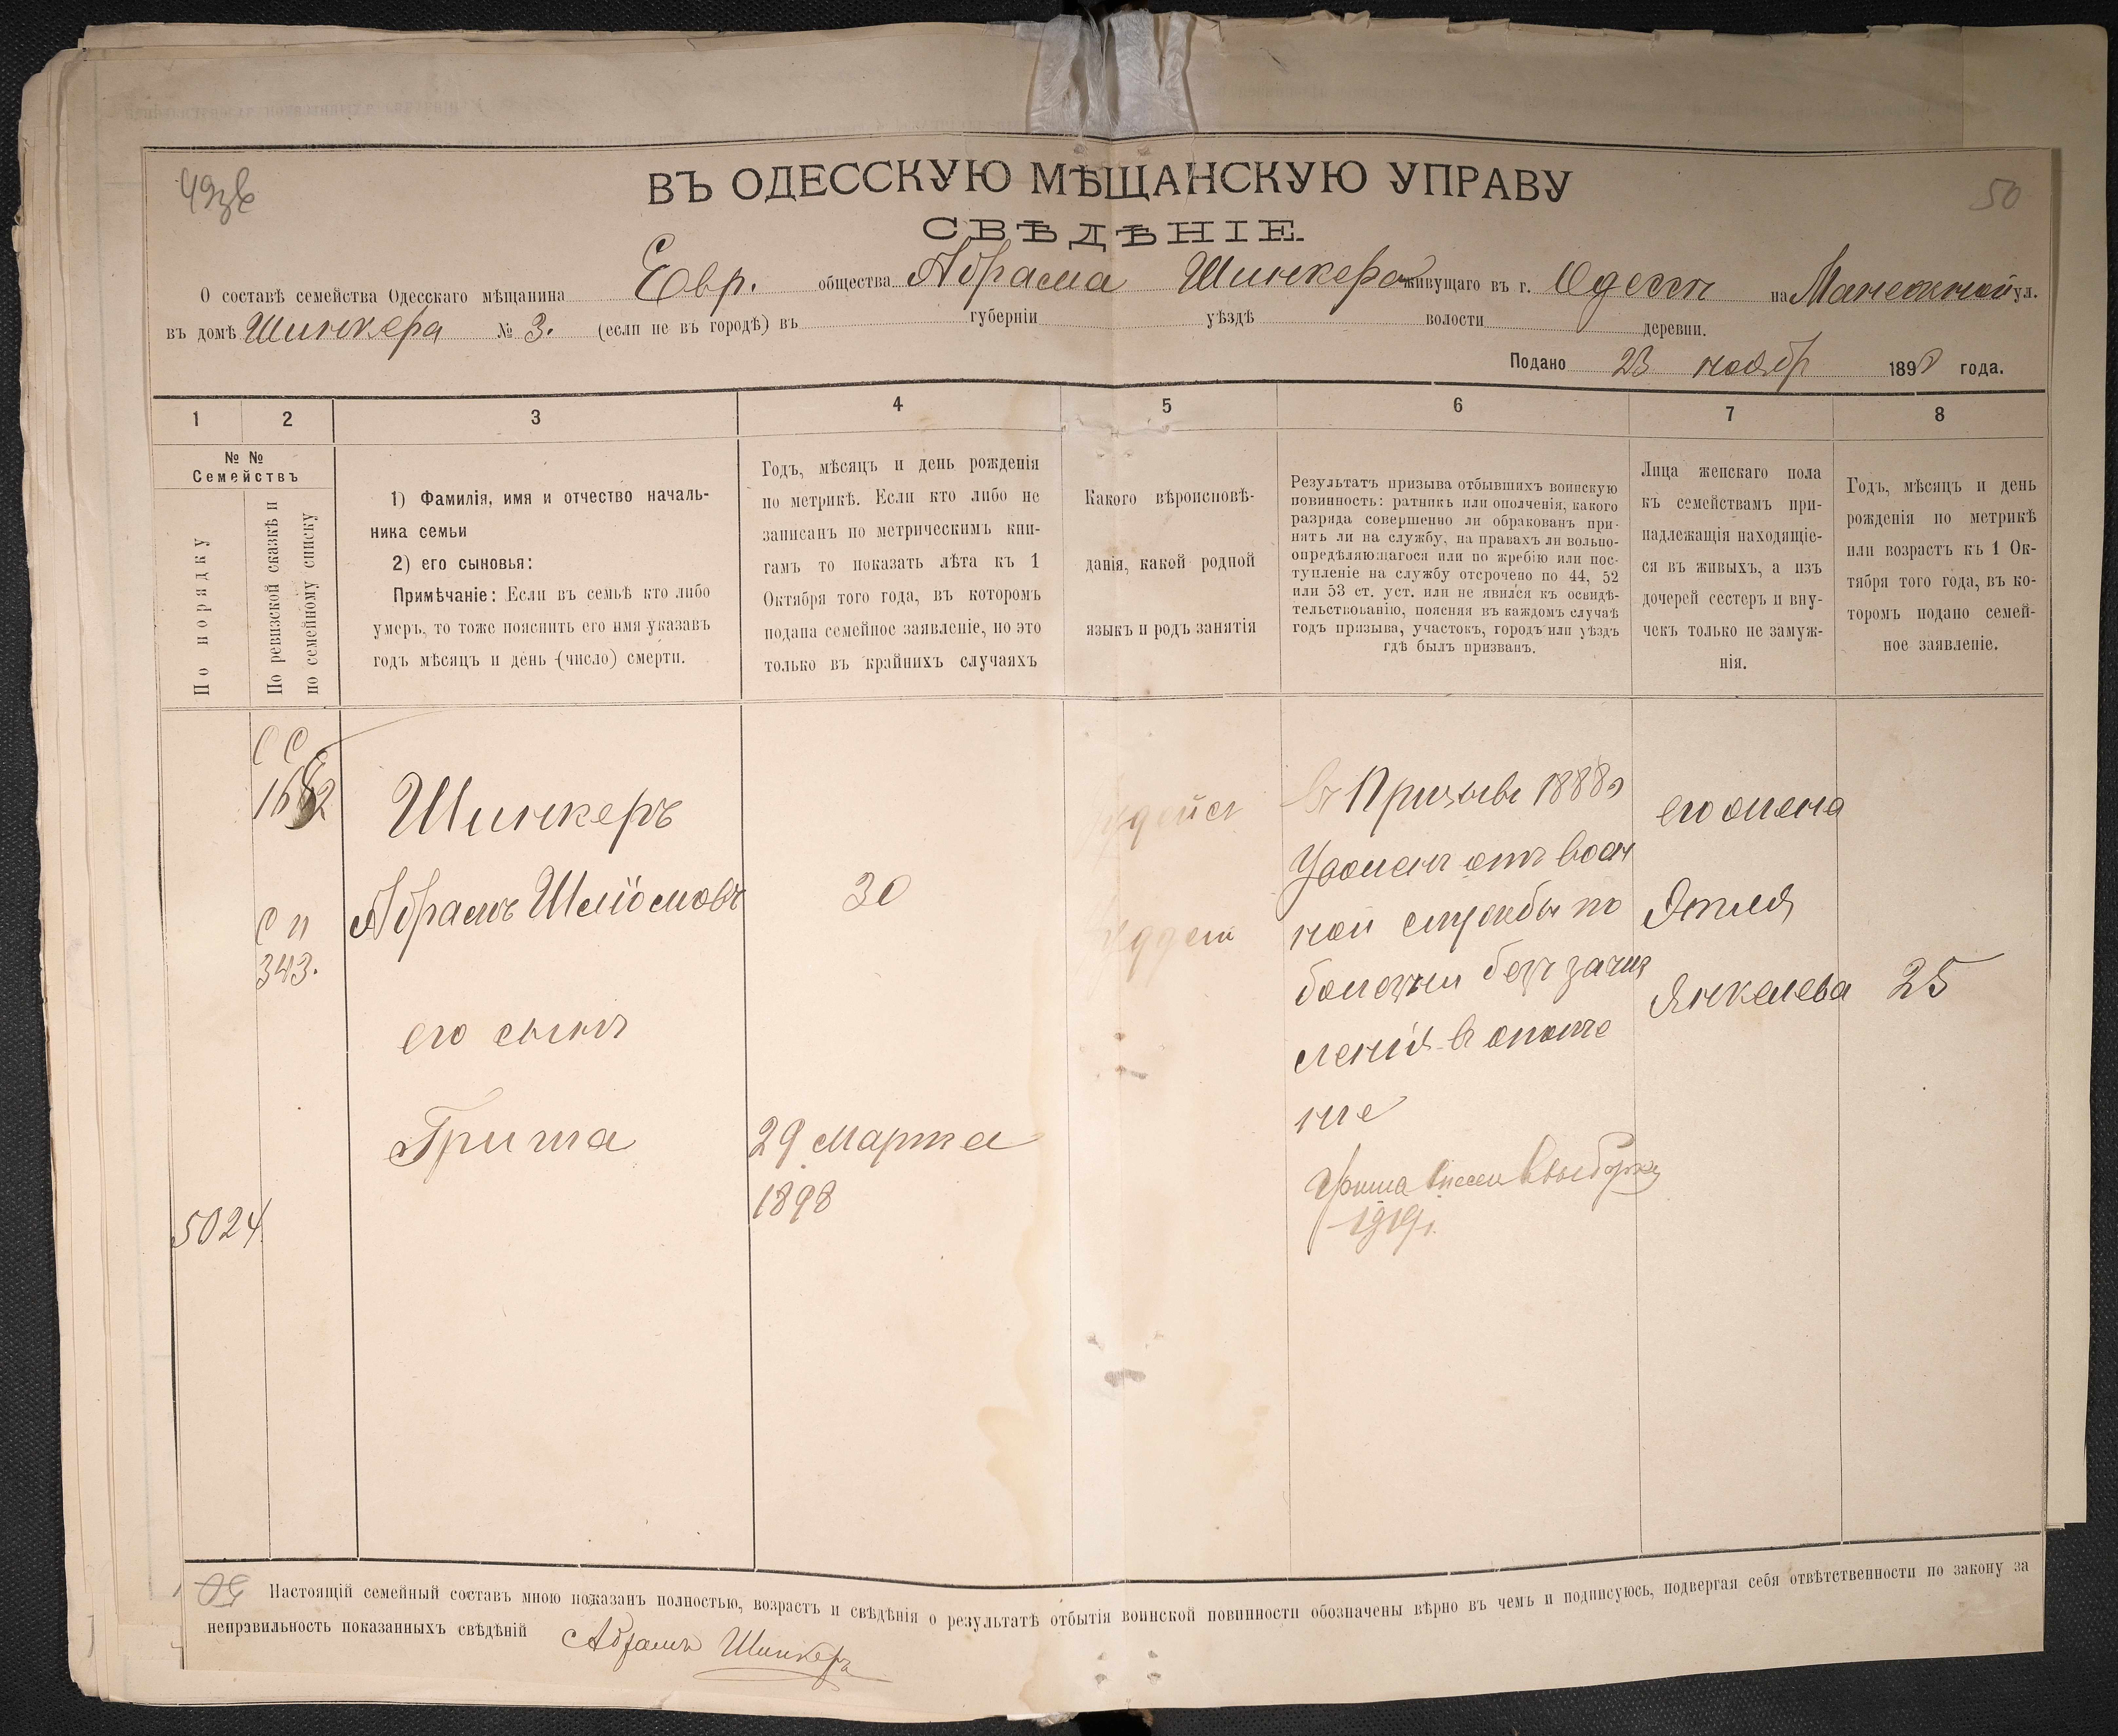 50
ВЪ ОДЕССКУЮ МѢЩАНСКУЮ УПРАВУ
СВѢДѢНІЕ.
О составѣ семейства Одесскаго мѣщанина Евр. общества Абрама Шинкера живущаго въ г. Одессѣ на Манежной ул.
въ домѣ Шинкера № 3. (если не въ городѣ) въ губерніи уѣздѣ волости деревни.
Подано 23 ноябр 1898 года.
1 2 3 4 5 6 7 8
№ №
Семействъ
По порядку
По ревизской сказкѣ и
по семейному списку
1) Фамилія, имя и отчество началь-
ника семьи
2) его сыновья:
Примѣчаніе: Если въ семьѣ кто либо
умеръ, то тоже пояснить его имя указавъ
годъ мѣсяцъ и день (число) смерти.
Годъ, мѣсяцъ и день рожденія
по метрикѣ. Если кто либо не
записанъ по метрическимъ кни-
гамъ то показать лѣта къ 1
Октября того года, въ которомъ
подана семейное заявленіе, но это
только въ крайнихъ случаяхъ
Какого вѣроисповѣ-
данія, какой родной
языкъ и родъ занятія
Результатъ призыва отбывшихъ воинскую
повинность: ратникъ или ополченія, какого
разряда совершенно ли обракованъ при-
нятъ ли на службу, на правахъ ли вольно-
опредѣляющагося или по жребію или пос-
тупленіе на службу отсрочено по 44, 52
или 53 ст. уст. или не явился къ освидѣ-
тельствованію, поясняя въ каждомъ случаѣ
годъ призыва, участокъ, городъ или уѣздъ
гдѣ былъ призванъ.
Лица женскаго пола
къ семействамъ при-
надлежащія находящіе-
ся въ живыхъ, а изъ
дочерей сестеръ и вну-
чекъ только не замуж-
нія.
Годъ, мѣсяцъ и день
рожденія по метрикѣ
или возрастъ къ 1 Ок-
тября того года, въ ко-
торомъ подано семей-
ное заявленіе.
С С
Шинкеръ
Абрамъ Шліомовъ
30
С п
343.
его сынъ
Гриша
29 Марта
1898
5024
въ Призывѣ 1888г
Уволенъ отъ воен
ной службы по
болезни безъ зачис
ленія в ополче
ніе
Гриша внесен в выборку
1919г.
его жена
Этля
Янкелева
25
50
Настоящій семейный составъ мною показанъ полностью, возрастъ и свѣдѣнія о результатѣ отбытія воинской повинности обозначены вѣрно въ чемъ и подписуюсь, подвергая себя отвѣтственности по закону за
неправильность показанныхъ свѣдѣній Абрамъ Шинкеръ